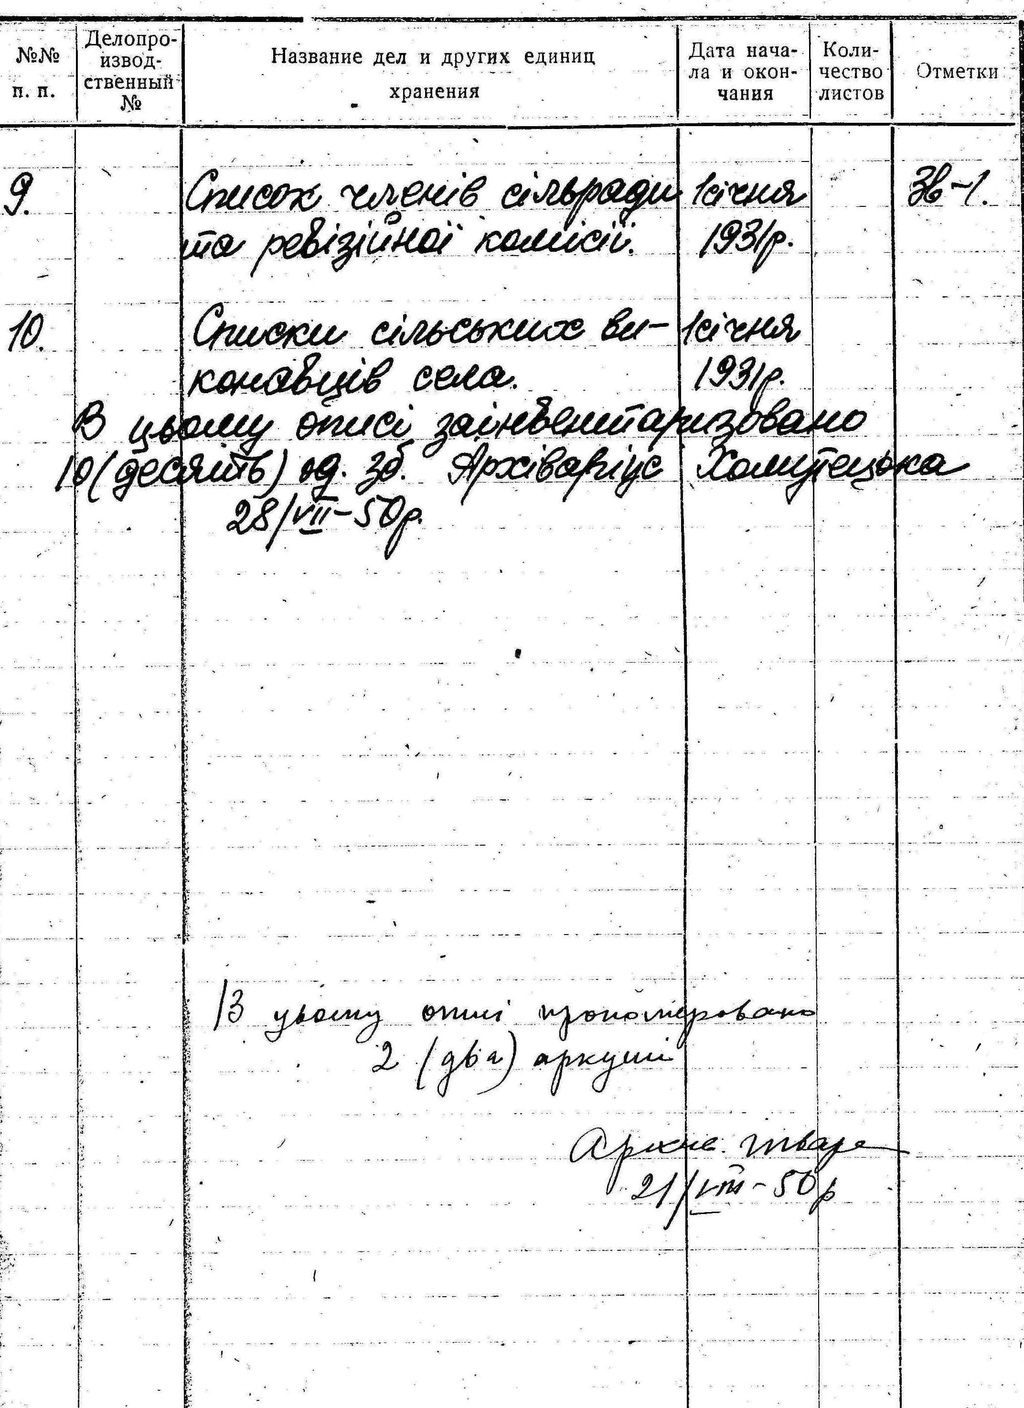 №№ п. п.
Делопро-
извод-
ственный
№
Название дел и других единиц
хранения
Дата нача-
ла и окон-
чания
Коли-
чество
листов
Отметки
9. Список членів сільради 1 січня Зв-1.
та ревізійної комісії. 1931р.
10. Списки сільських ви- 1 січня
конавців села. 1931р.
В цьому описі заінвентаризовано
10 (десять) од. зб. Архіваріус Хомутецька
28/VII-50р.
В цьому описі пронумеровано
2 (два) аркуші
Архив.
21/VIII-50р